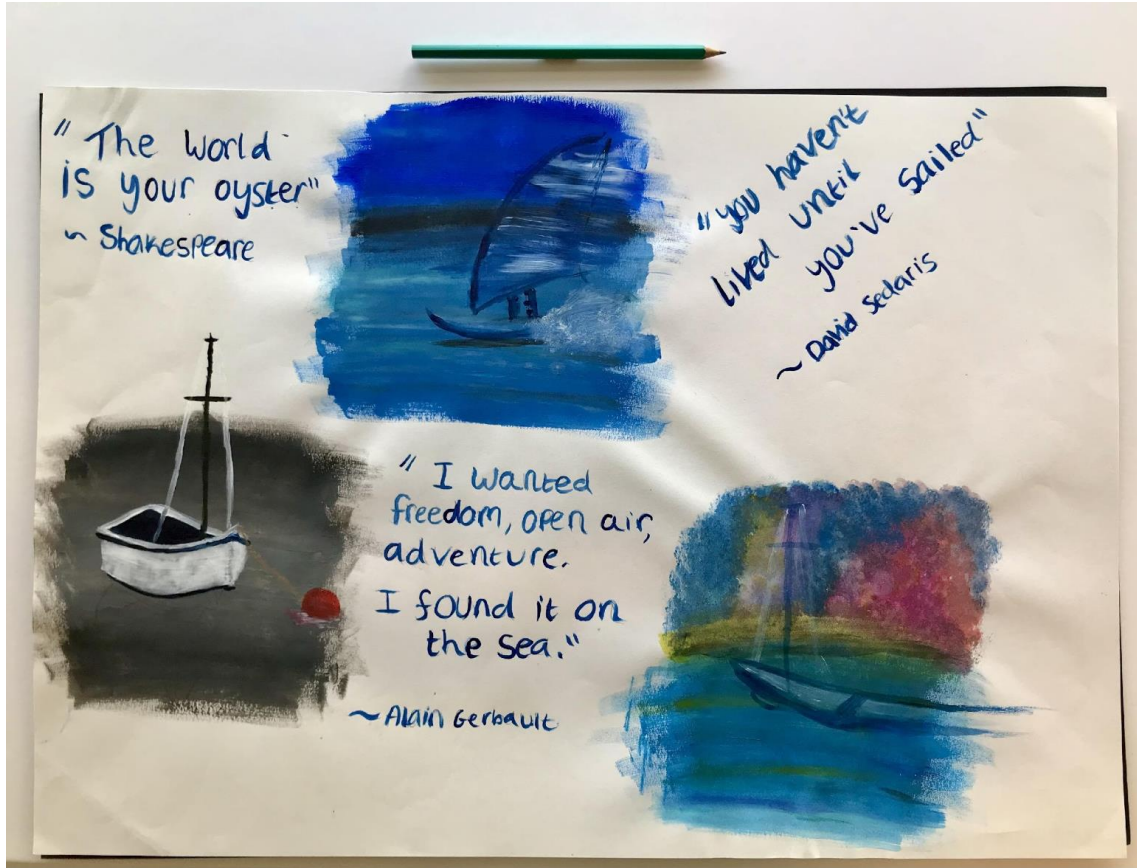 "The world
is your oyster"
~ Shakespeare
"you haven't
lived until
you've sailed"
~ David Sedaris
"I wanted
freedom, open air,
adventure.
I found it on
the sea."
~ Alain Gerbault